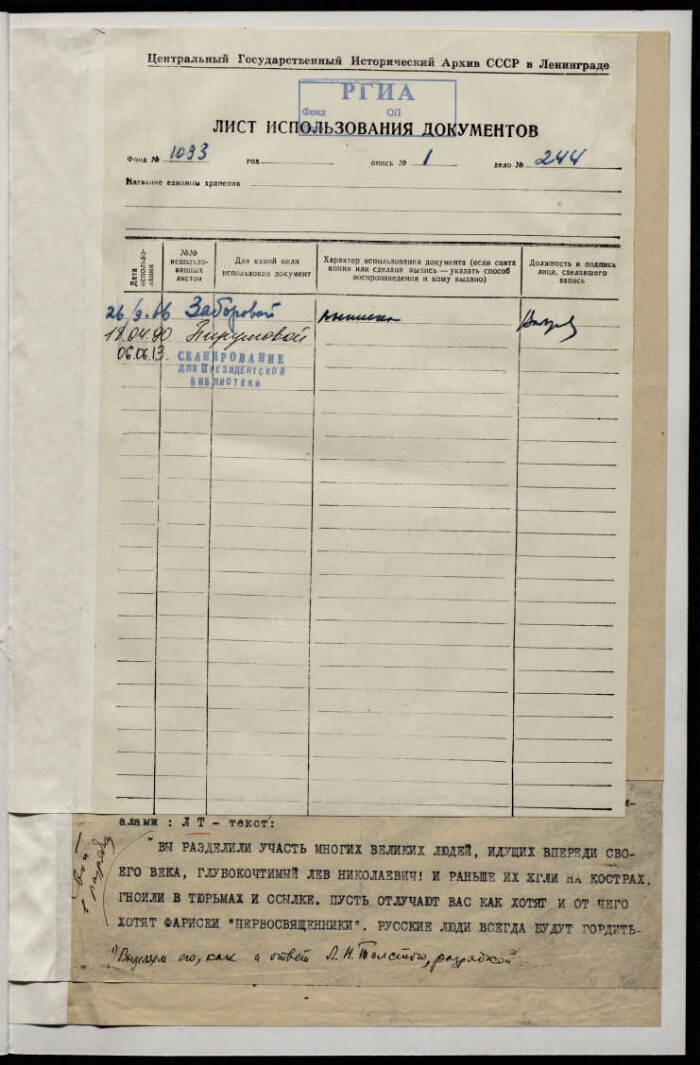 Центральный Государственный Исторический Архив СССР в Ленинграде
РГИА
Фонд ОП
ЛИСТ ИСПОЛЬЗОВАНИЯ ДОКУМЕНТОВ
Фонд № 1093 год опись № 1 дело № 244
Название единицы хранения
Дата использо-вания
№№ использо-ванных листов
Для какой цели использован документ
Характер использования документа (если снята копия или сделана выпись — указать способ воспроизведения и кому выдано)
Должность и подпись лица, сделавшего запись
26/9.66 Заборовой выписки
18.04.90 Пирумовой
06.06.13. СКАНИРОВАНИЕ
ДЛЯ ПРЕЗИДЕНТСКОЙ
БИБЛИОТЕКИ
алами : Л Т - текст:
"ВЫ РАЗДЕЛИЛИ УЧАСТЬ МНОГИХ ВЕЛИКИХ ЛЮДЕЙ, ИДУЩИХ ВПЕРЕДИ СВО-
ЕГО ВЕКА, ГЛУБОКОЧТИМЫЙ ЛЕВ НИКОЛАЕВИЧ! И РАНЬШЕ ИХ ЖГЛИ НА КОСТРАХ,
ГНОИЛИ В ТЮРЬМАХ И ССЫЛКЕ. ПУСТЬ ОТЛУЧАЮТ ВАС КАК ХОТЯТ И ОТ ЧЕГО
ХОТЯТ ФАРИСЕИ "ПЕРВОСВЯЩЕННИКИ". РУССКИЕ ЛЮДИ ВСЕГДА БУДУТ ГОРДИТЬ-
Выделяем его, как и ответ Л. Н. Толстого, разрядкой